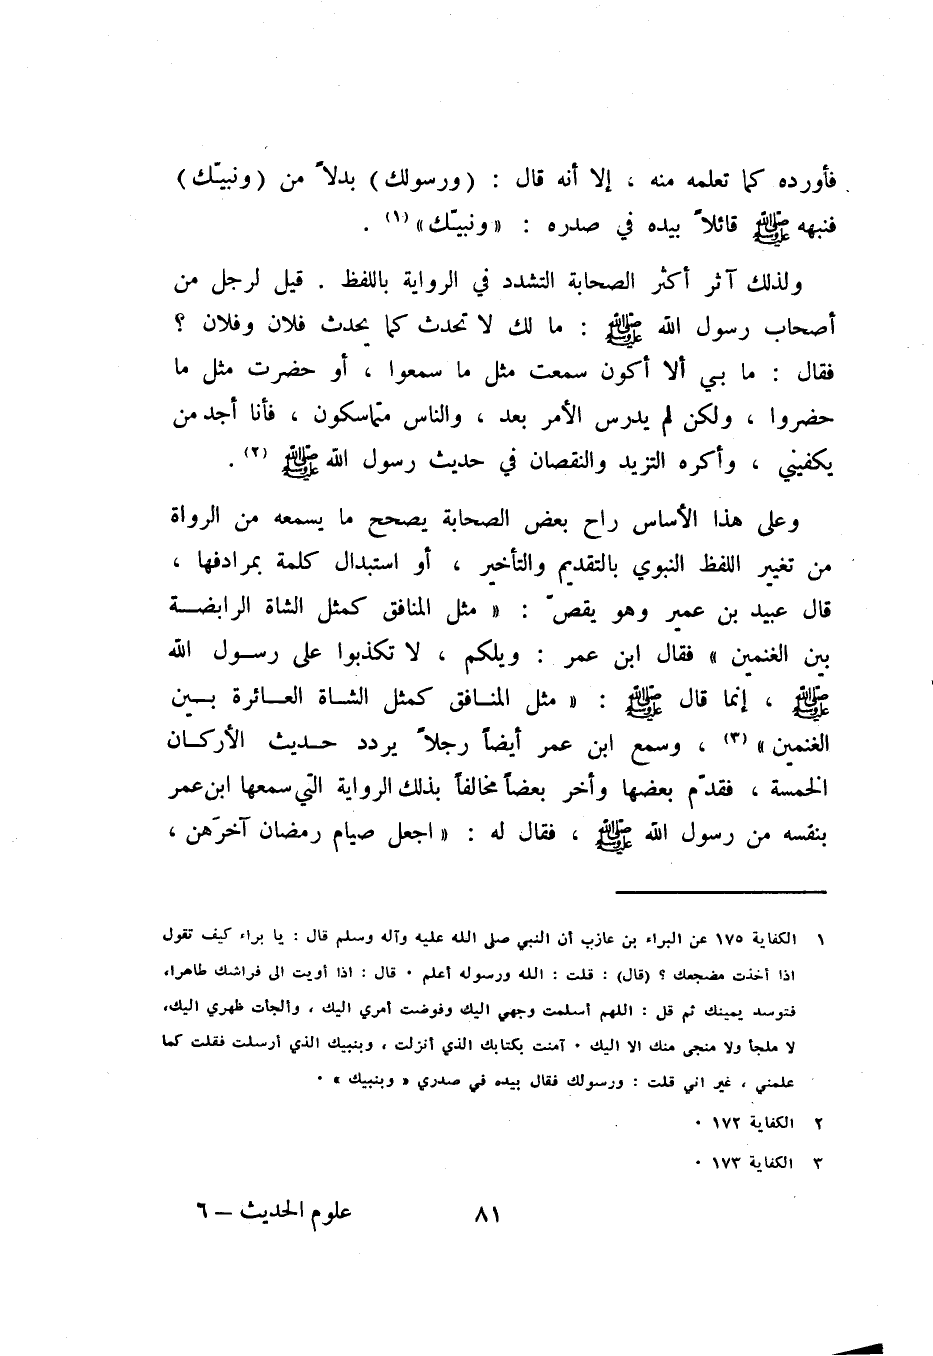 فأورده كما تعلمه منه ، إلا أنه قال : (ورسولك) بدلاً من (ونبيّك)
فنبهه ﷺ قائلاً بيده في صدره : «ونبيّك» (١) .
ولذلك آثر أكثر الصحابة التشدد في الرواية باللفظ . قيل لرجل من
أصحاب رسول الله ﷺ : ما لك لا تحدث كما يحدث فلان وفلان ؟
فقال : ما بي ألا أكون سمعت مثل ما سمعوا ، أو حضرت مثل ما
حضروا ، ولكن لم يدرس الأمر بعد ، والناس متماسكون ، فأنا أجد من
يكفيني ، وأكره التزيد والنقصان في حديث رسول الله ﷺ (٢) .
وعلى هذا الأساس راح بعض الصحابة يصحح ما يسمعه من الرواة
من تغيير اللفظ النبوي بالتقديم والتأخير ، أو استبدال كلمة بمرادفها ،
قال عبيد بن عمير وهو يقصّ : « مثل المنافق كمثل الشاة الرابضة
بين الغنمين » فقال ابن عمر : ويلكم ، لا تكذبوا على رسول الله
ﷺ ، إنما قال ﷺ : « مثل المنافق كمثل الشاة العائرة بين
الغنمين» (٣) ، وسمع ابن عمر أيضاً رجلاً يردد حديث الأركان
الخمسة ، فقدّم بعضها وأخر بعضاً مخالفاً بذلك الرواية التي سمعها ابن عمر
بنفسه من رسول الله ﷺ ، فقال له : « اجعل صيام رمضان آخرَهن ،
١ الكفاية ١٧٥ عن البراء بن عازب أن النبي صلى الله عليه وآله وسلم قال : يا براء كيف تقول
اذا أخذت مضجعك ؟ (قال) : قلت : الله ورسوله أعلم . قال : اذا أويت الى فراشك طاهرا،
فتوسد يمينك ثم قل : اللهم أسلمت وجهي اليك وفوضت أمري اليك ، وألجأت ظهري اليك،
لا ملجأ ولا منجى منك الا اليك . آمنت بكتابك الذي أنزلت ، وبنبيك الذي أرسلت فقلت كما
علمني ، غير اني قلت : ورسولك فقال بيده في صدري « وبنبيك » .
٢ الكفاية ١٧٢ .
٣ الكفاية ١٧٣ .
٨١ علوم الحديث – ٦